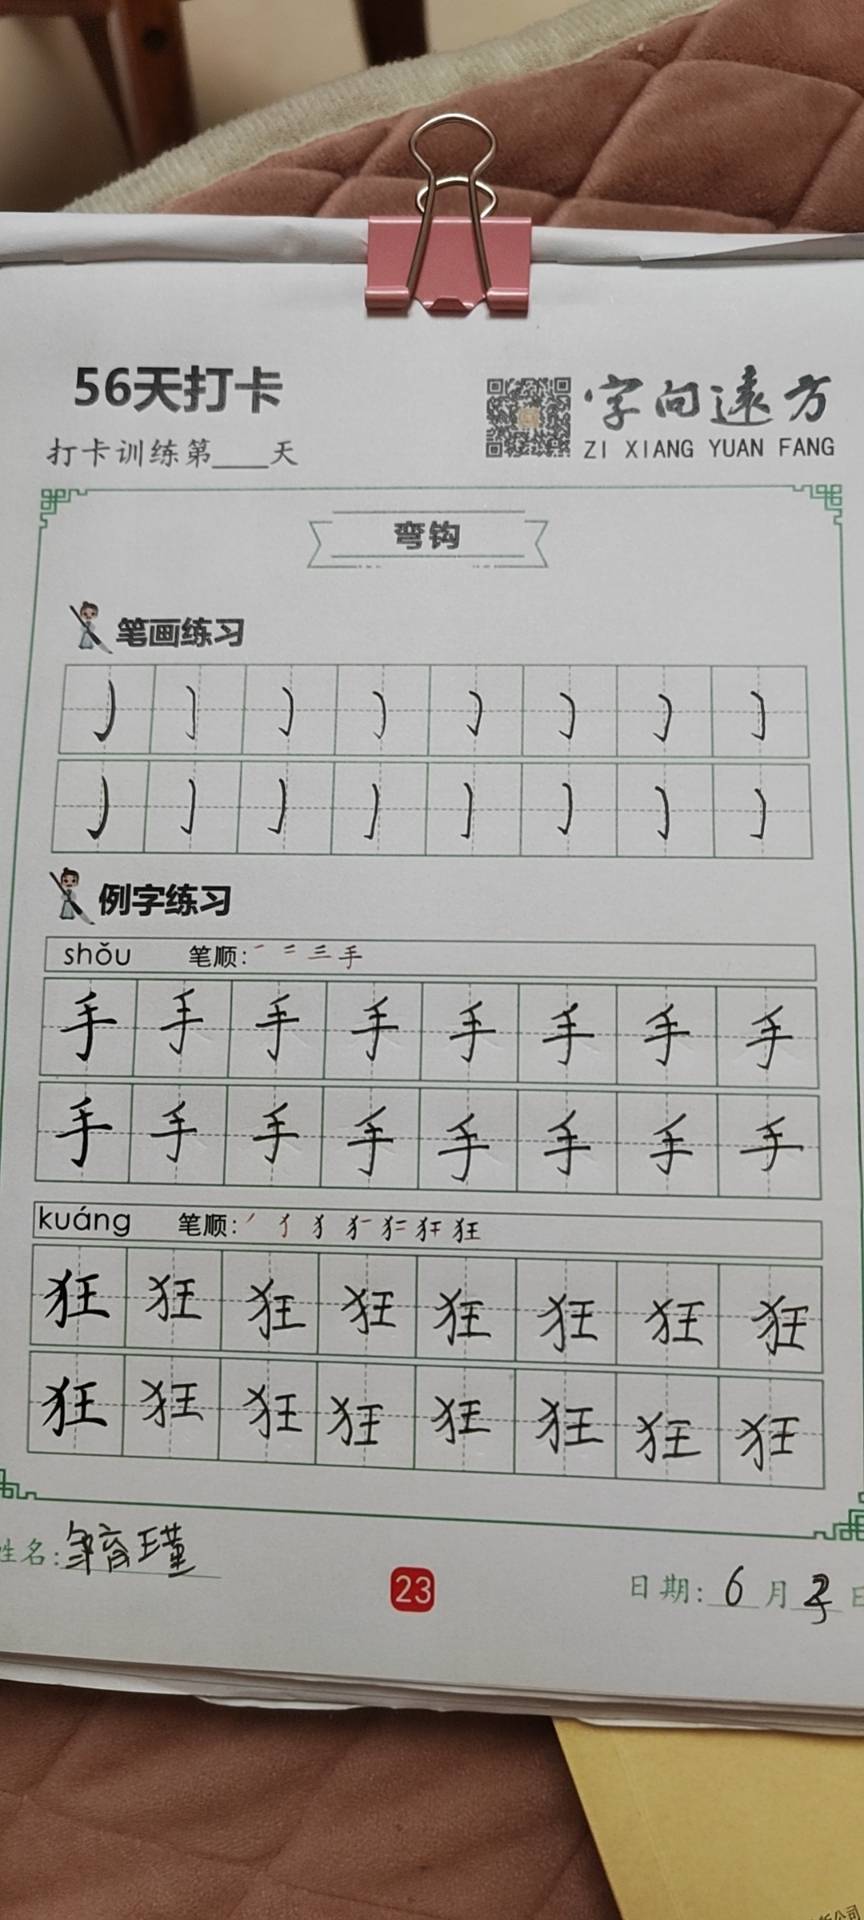 56天打卡
打卡训练第____天
字向远方
ZI XIANG YUAN FANG
弯钩
笔画练习
例字练习
shǒu 笔顺: 一 二 三 手
手 手 手 手 手 手 手 手
手 手 手 手 手 手 手 手
kuáng 笔顺: ノ 犭 狂
狂 狂 狂 狂 狂 狂 狂 狂
狂 狂 狂 狂 狂 狂 狂 狂
姓名: 育瑾
23
日期: 6 月 日
公司